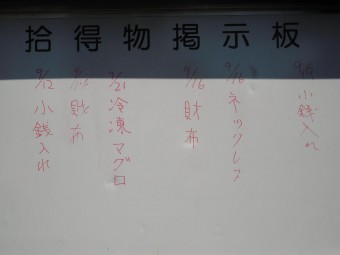 拾得物掲示板
小銭入れ
9/16 ネックレス
9/16 財布
9/21 冷凍マグロ
財布
9/12 小銭入れ